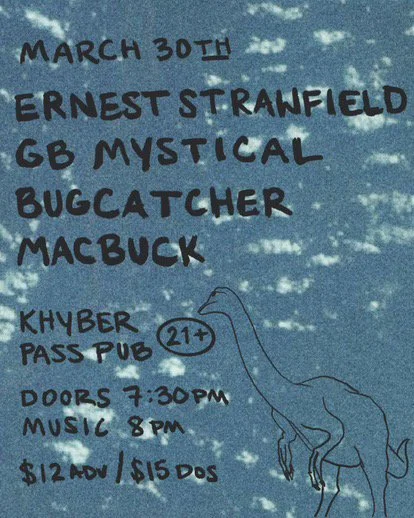 MARCH 30TH
ERNEST STRAWFIELD
GB MYSTICAL
BUGCATCHER
MACBUCK
KHYBER
PASS PUB
21+
DOORS 7:30PM
MUSIC 8PM
$12 ADV / $15 DOS